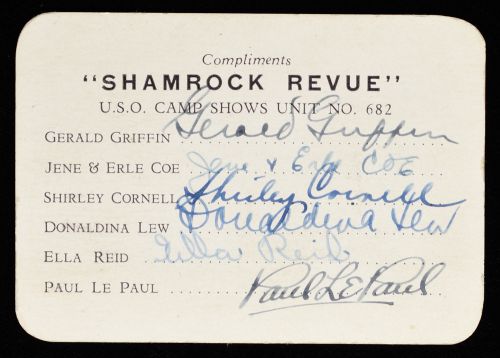 Compliments
"SHAMROCK REVUE"
U.S.O. CAMP SHOWS UNIT NO. 682
GERALD GRIFFIN Gerald Griffin
JENE & ERLE COE Jene & Erle COE
SHIRLEY CORNELL Shirley Cornell
DONALDINA LEW Donaldina Lew
ELLA REID Ella Reid
PAUL LE PAUL Paul LePaul